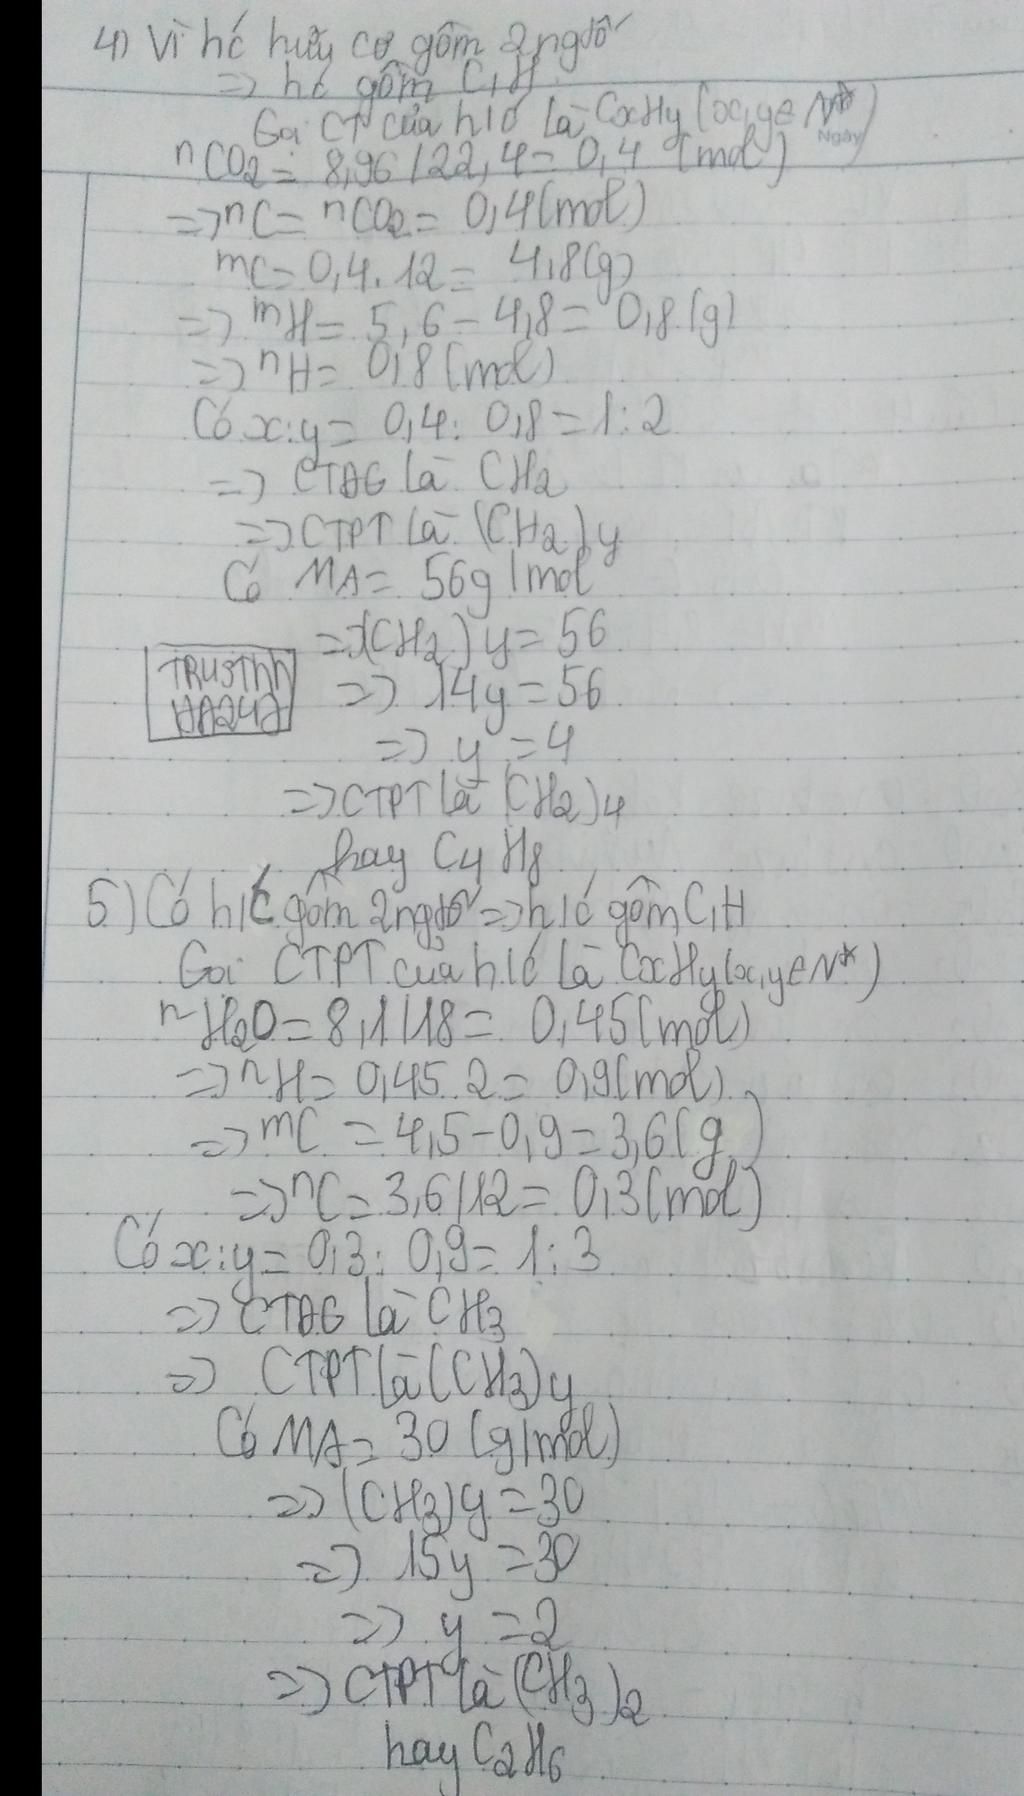 4) Vì h/c hữu cơ gồm 2 ngtố
=> h/c gồm C, H
Gọi CT của h/c là CxHy (x,y ∈ N*)
Ngày
nCO2 = 8,96/22,4 = 0,4 (mol)
=> nC = nCO2 = 0,4 (mol)
mC = 0,4.12 = 4,8 (g)
=> mH = 5,6 - 4,8 = 0,8 (g)
=> nH = 0,8 (mol)
Có x:y = 0,4 : 0,8 = 1:2
=> CTĐG là CH2
=> CTPT là (CH2)y
Có MA = 56g/mol
=> (CH2)y = 56
=> 14y = 56
=> y = 4
=> CTPT là (CH2)4
hay C4H8
5) Có h/c gồm 2 ngtố => h/c gồm C, H
Gọi CTPT của h/c là CxHy (x,y ∈ N*)
nH2O = 8,1/18 = 0,45 (mol)
=> nH = 0,45.2 = 0,9 (mol)
=> mC = 4,5 - 0,9 = 3,6 (g)
=> nC = 3,6/12 = 0,3 (mol)
Có x:y = 0,3 : 0,9 = 1:3
=> CTĐG là CH3
=> CTPT là (CH3)y
Có MA = 30 (g/mol)
=> (CH3)y = 30
=> 15y = 30
=> y = 2
=> CTPT là (CH3)2
hay C2H6